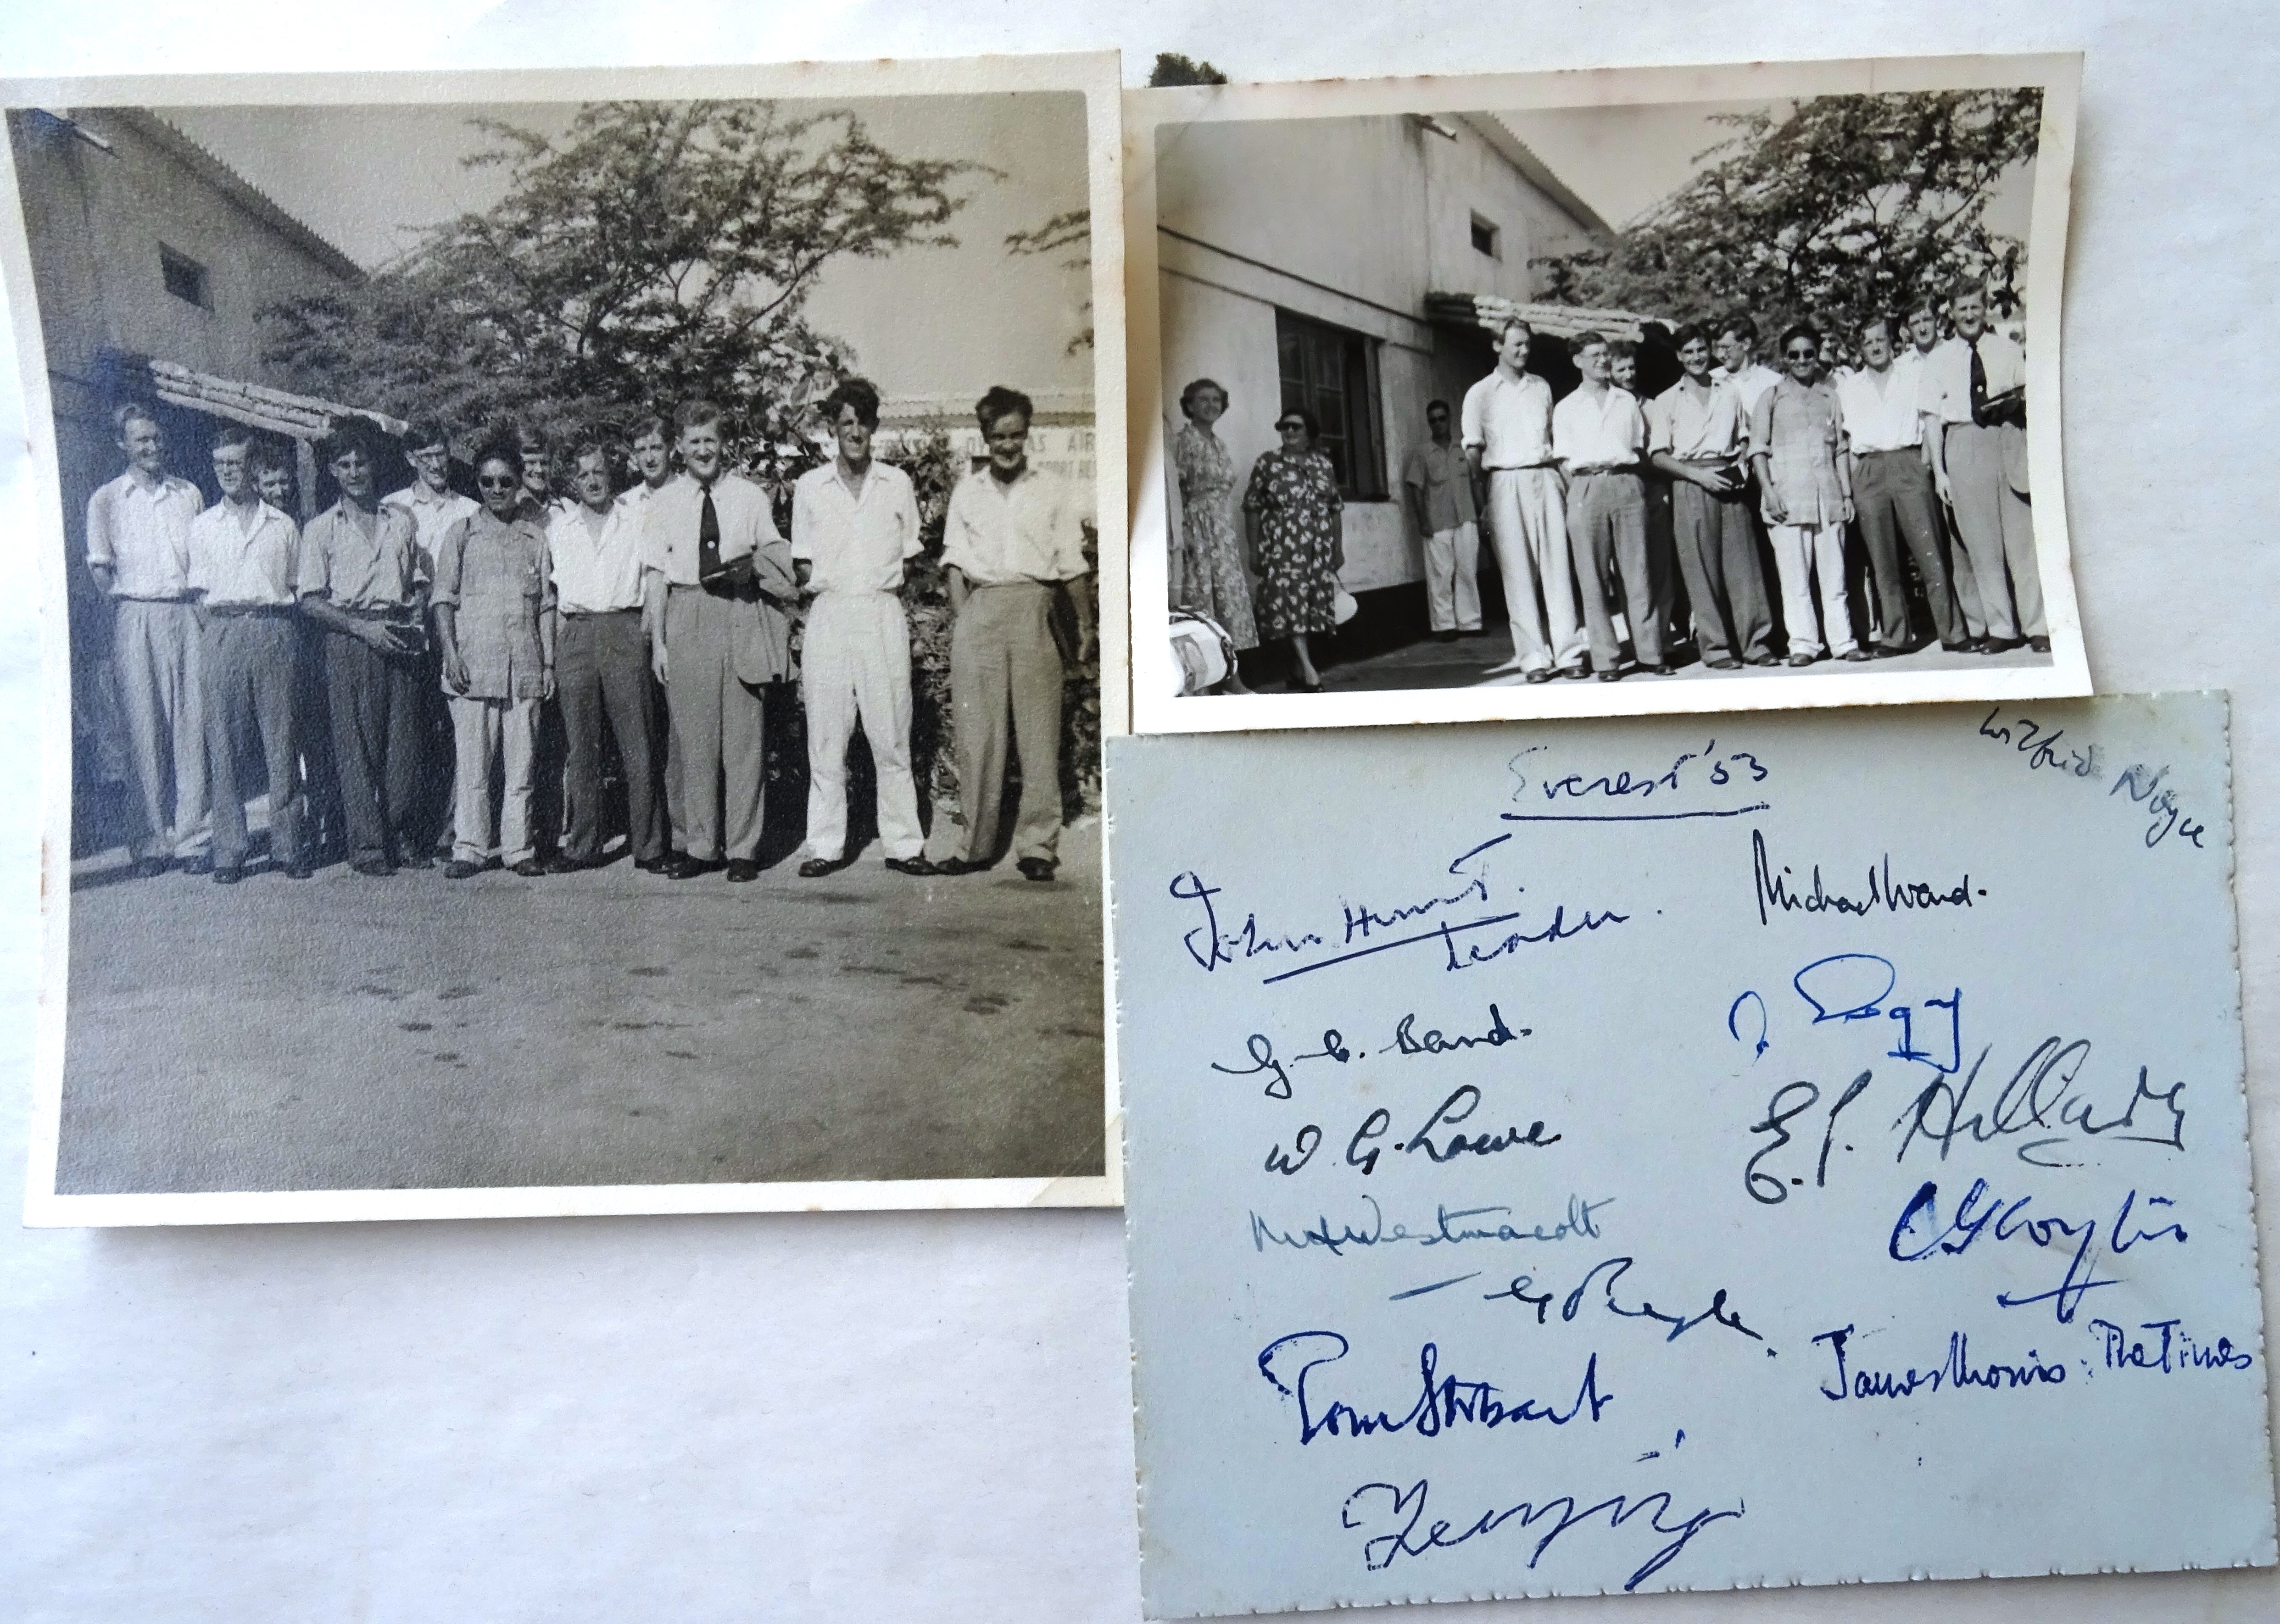 OVERSEAS AIR
Everest '53
Wilfrid Noyce
John Hunt.
Leader.
Michael Ward.
G. C. Band.
W. G. Lowe
E. P. Hillary
M H Westmacott
C G Wylie
Tom Stobart
James Morris. The Times
Tenzing